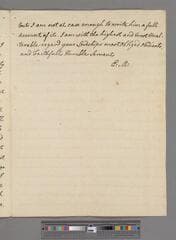 but I am not at ease enough to write him a full
account of it. I am with the highest and most Unal-
terable regard your Ladyships most Obliged Obedient
and Faithfull Humble Servant
E. M: